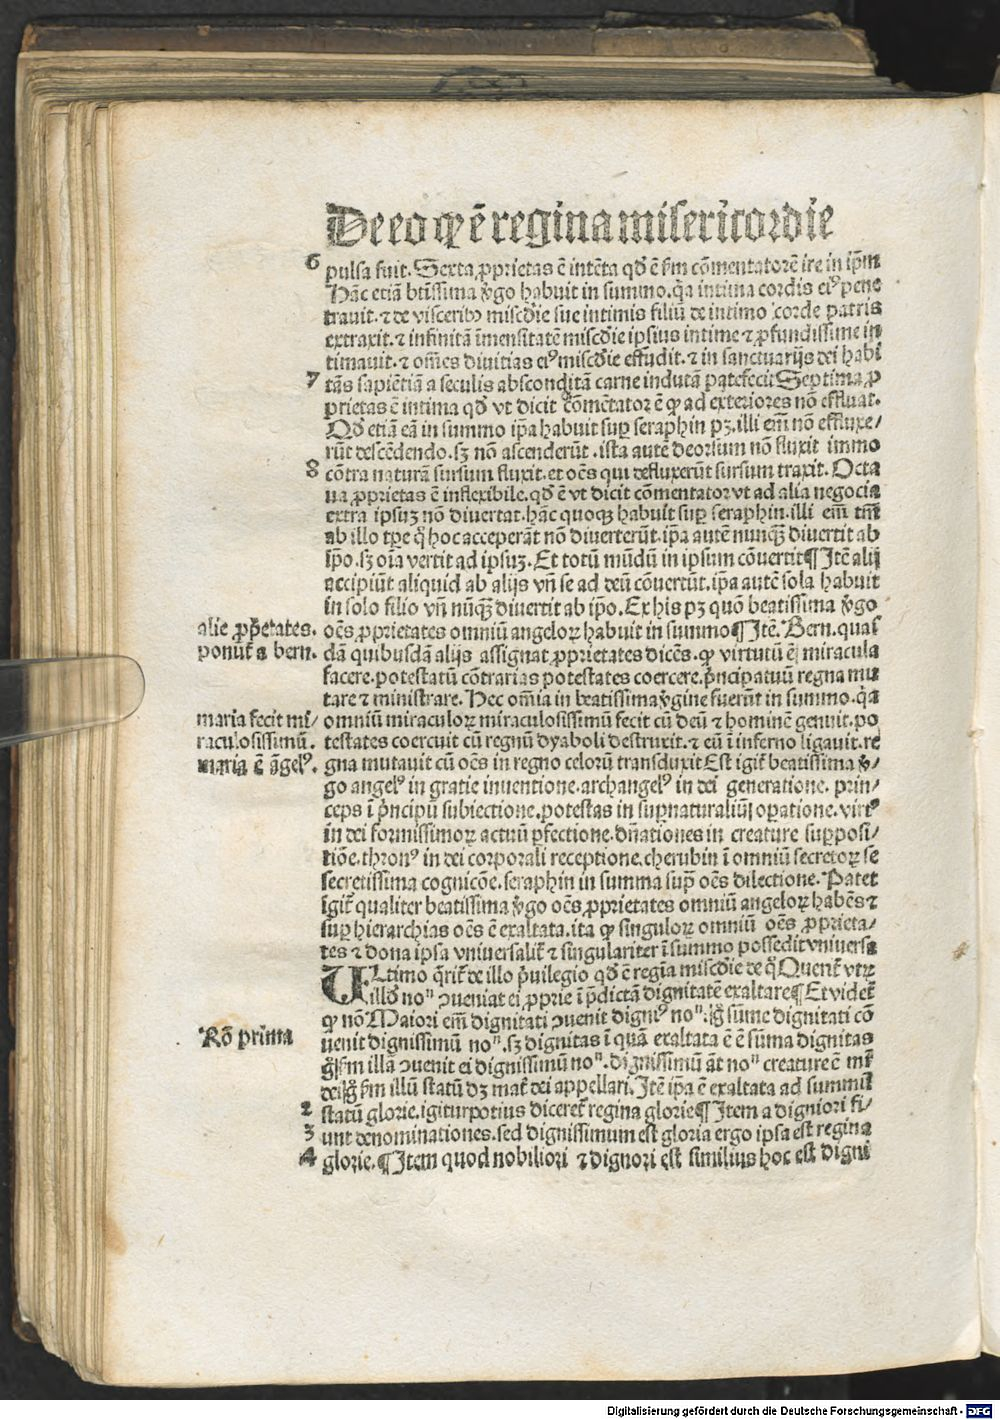 De eo ꝙ ē regina misericordie
6 pulsa fuit. Sexta ꝓprietas ē intēta qd̄ ē ẜm cōmentatorē ire in ip̄m
Hāc etiā btissima v̾go habuit in summo. q̄a intima cordis eiꝰ pene
trauit. ⁊ de visceribꝰ miscd̄ie sue intimis filiū de intimo corde patris
extraxit. ⁊ infinitā īmensitatē miscd̄ie ipsius intime ⁊ ꝓfundissime in
timauit. ⁊ om̄es diuitias eiꝰ miscd̄ie effudit. ⁊ in sanctuarijs dei habi
7 tās sapiētiā a seculis absconditā carne indutā patefecit Septima ꝓ
prietas ē intima qd̄ vt dicit cōmētator ē ꝙ ad exteriores nō effluat.
Qd̄ etiā eā in summo ip̄a habuit suꝑ seraphin pꝫ. illi em̄ nō effluxe/
rūt descēdendo. sꝫ nō ascenderūt. ista autē deorsum nō fluxit immo
8 cōtra naturā sursum fluxit. et oēs qui defluxerūt sursum traxit. Octa
ua ꝓprietas ē inflexibile. qd̄ ē vt dicit cōmentator vt ad alia negocia
extra ipsuꝫ nō diuertat. hāc quoqꝫ habuit suꝑ seraphin. illi em̄ tm̄
ab illo tꝑe q̊ hoc acceperāt nō diuerterūt. ip̄a autē nunqꝫ diuertit ab
ip̄o. sꝫ oīa vertit ad ipsuꝫ. Et totū mūdū in ipsum cōuertit ¶ Itē alij
accipiūt aliquid ab alijs vn̄ se ad deū cōuertūt. ip̄a autē sola habuit
in solo filio vn̄ nūqꝫ diuertit ab ip̄o. Ex his pꝫ quō beatissima v̾go
alie ꝓp̄etates. oēs ꝓprietates omniū angeloꝝ habuit in summo ¶ Itē. Bern. quas
ponut̄ a bern. dā quibusdā alijs assignat ꝓprietates dicēs. ꝙ virtutū ē miracula
facere. potestatū cōtrarias potestates coercere. p̄ncipatuū regna mu
tare ⁊ ministrare. Hec om̄ia in beatissima v̾gine fuerūt in summo. q̄a
maria fecit mi/ omniū miraculoꝝ miraculosissimū fecit cū deū ⁊ hominē genuit. po
raculosissimū. testates coercuit cū regnū dyaboli destruxit. ⁊ eū ī inferno ligauit. re
maria ē āgelꝰ. gna mutauit cū oēs in regno celorū transduxit Est igit̄ beatissima v̾/
go angelꝰ in gratie inuentione. archangelꝰ in dei generatione. prin/
ceps ī p̄ncipū subiectione. potestas in suꝑnaturaliū oꝑatione. virtꝰ
in dei formissimoꝝ actuū ꝑfectione. dn̄ationes in creature suꝑposi/
tiōe. thronꝰ in dei corporali receptione. cherubin ī omniū secretoꝝ se
secretissima cognicōe. seraphin in summa suꝑ oēs dilectione. Patet
igit̄ qualiter beatissima v̾go oēs ꝓprietates omniū angeloꝝ habēs ⁊
suꝑ hierarchias oēs ē exaltata. ita ꝙ singuloꝝ omniū oēs ꝓprieta/
tes ⁊ dona ipsa vniuersalit̄ ⁊ singulariter ī summo possedit vniuersa
Vltimo q̄rit̄ de illo p̄uilegio qd̄ ē regīa miscd̄ie de q̊ Querit̄ vtꝝ
illd̄ noⁿ ꝯueniat ei ꝓprie ī p̄dictā dignitatē exaltare ¶ Et videt̄
ꝙ nō Maiori em̄ dignitati ꝯuenit digniꝰ noⁿ. ig̊ sūme dignitati cō
Rō prima uenit dignissimū noⁿ. sꝫ dignitas ī quā exaltata ē ē sūma dignitas
g̊ ẜm illā ꝯuenit ei dignissimū noⁿ. dignissimū āt noⁿ creature ē mr̄
dei ig̊ ẜm illū statū dꝫ mat̄ dei appellari. Itē ip̄a ē exaltata ad summū
2 statū glorie. igitur potius diceret̄ regina glorie ¶ Item a digniori fi/
3 unt denominationes. sed dignissimum est gloria ergo ipsa est regina
4 glorie. ¶ Item quod nobiliori ⁊ dignori est similius hoc est digni
Digitalisierung gefördert durch die Deutsche Forschungsgemeinschaft - DFG